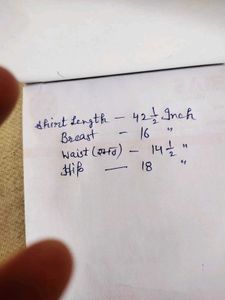 Shirt Length - 42 1/2 Inch
Breast - 16 "
Waist ( ) - 14 1/2 "
Hip - 18 "